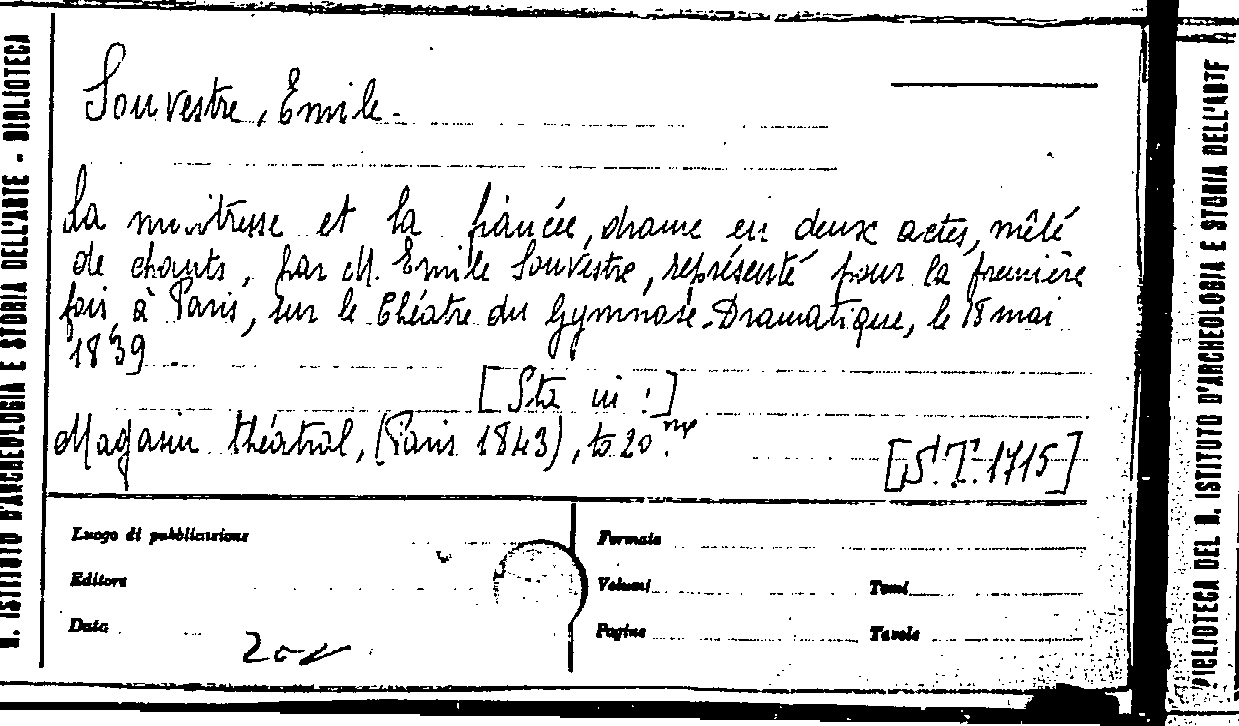 Souvestre, Emile.
La maitresse et la fiancée, drame en deux actes, mêlé
de chants, par M. Emile Souvestre, représenté pour la première
fois, à Paris, sur le théatre du Gymnase-Dramatique, le 18 mai
1839
[Sta in:]
Magasin théatral, (Paris 1843), to 20
[S.T. 1715]
Luogo di pubblicazione
Formato
Editore
Volumi
Tomi
Data
Pagine
Tavole
R. ISTITUTO D'ARCHEOLOGIA E STORIA DELL'ARTE - BIBLIOTECA
BIBLIOTECA DEL R. ISTITUTO D'ARCHEOLOGIA E STORIA DELL'ARTE